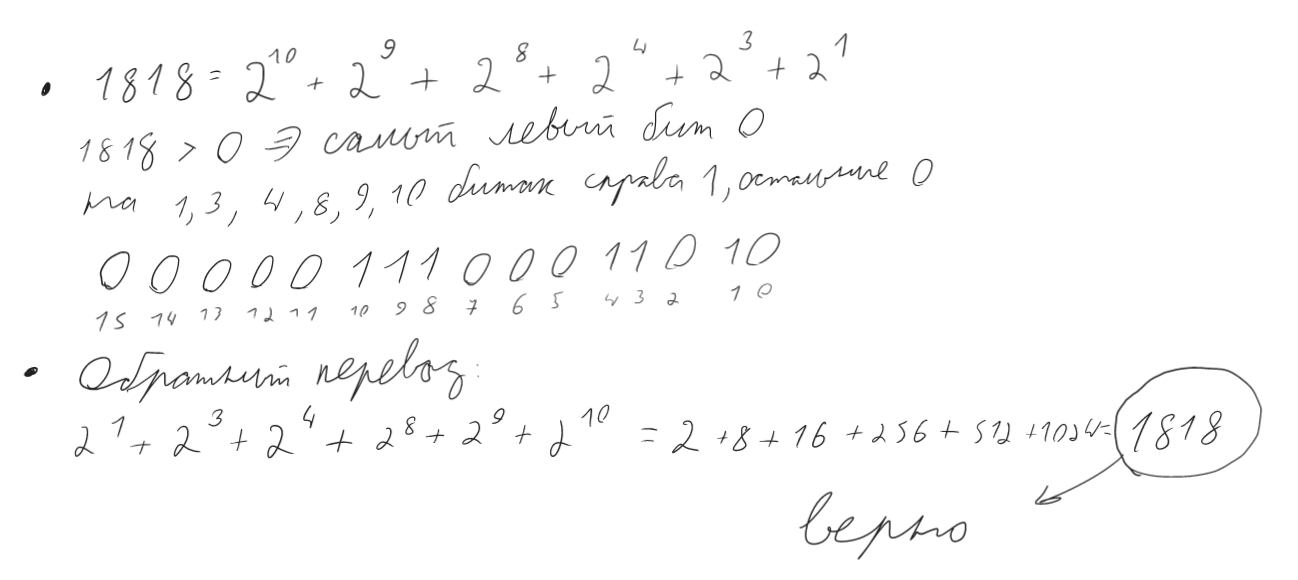 • 1818 = 2^10 + 2^9 + 2^8 + 2^4 + 2^3 + 2^1
1818 > 0 ⇒ самый левый бит 0
на 1, 3, 4, 8, 9, 10 битах справа 1, остальные 0
0 0 0 0 0 1 1 1 0 0 0 1 1 0 1 0
15 14 13 12 11 10 9 8 7 6 5 4 3 2 1 0
• Обратный перевод:
2^1 + 2^3 + 2^4 + 2^8 + 2^9 + 2^10 = 2 + 8 + 16 + 256 + 512 + 1024 = 1818
верно